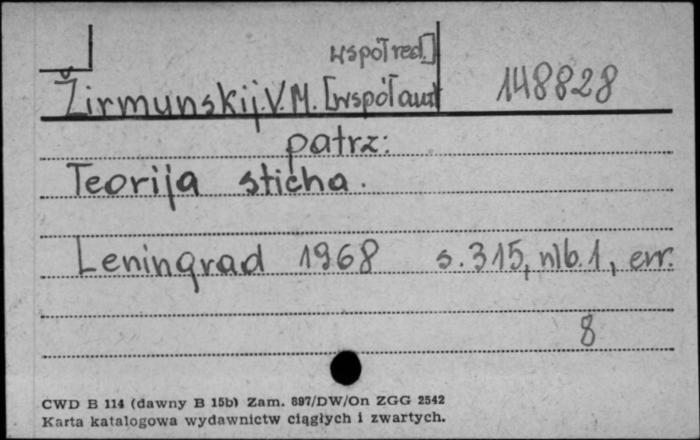 współred.]
Žirmunskij V.M. [współaut 148828
patrz:
Teorija sticha.
Leningrad 1968 s. 315, nlb. 1, err.
8
CWD B 114 (dawny B 15b) Zam. 897/DW/On ZGG 2542
Karta katalogowa wydawnictw ciągłych i zwartych.